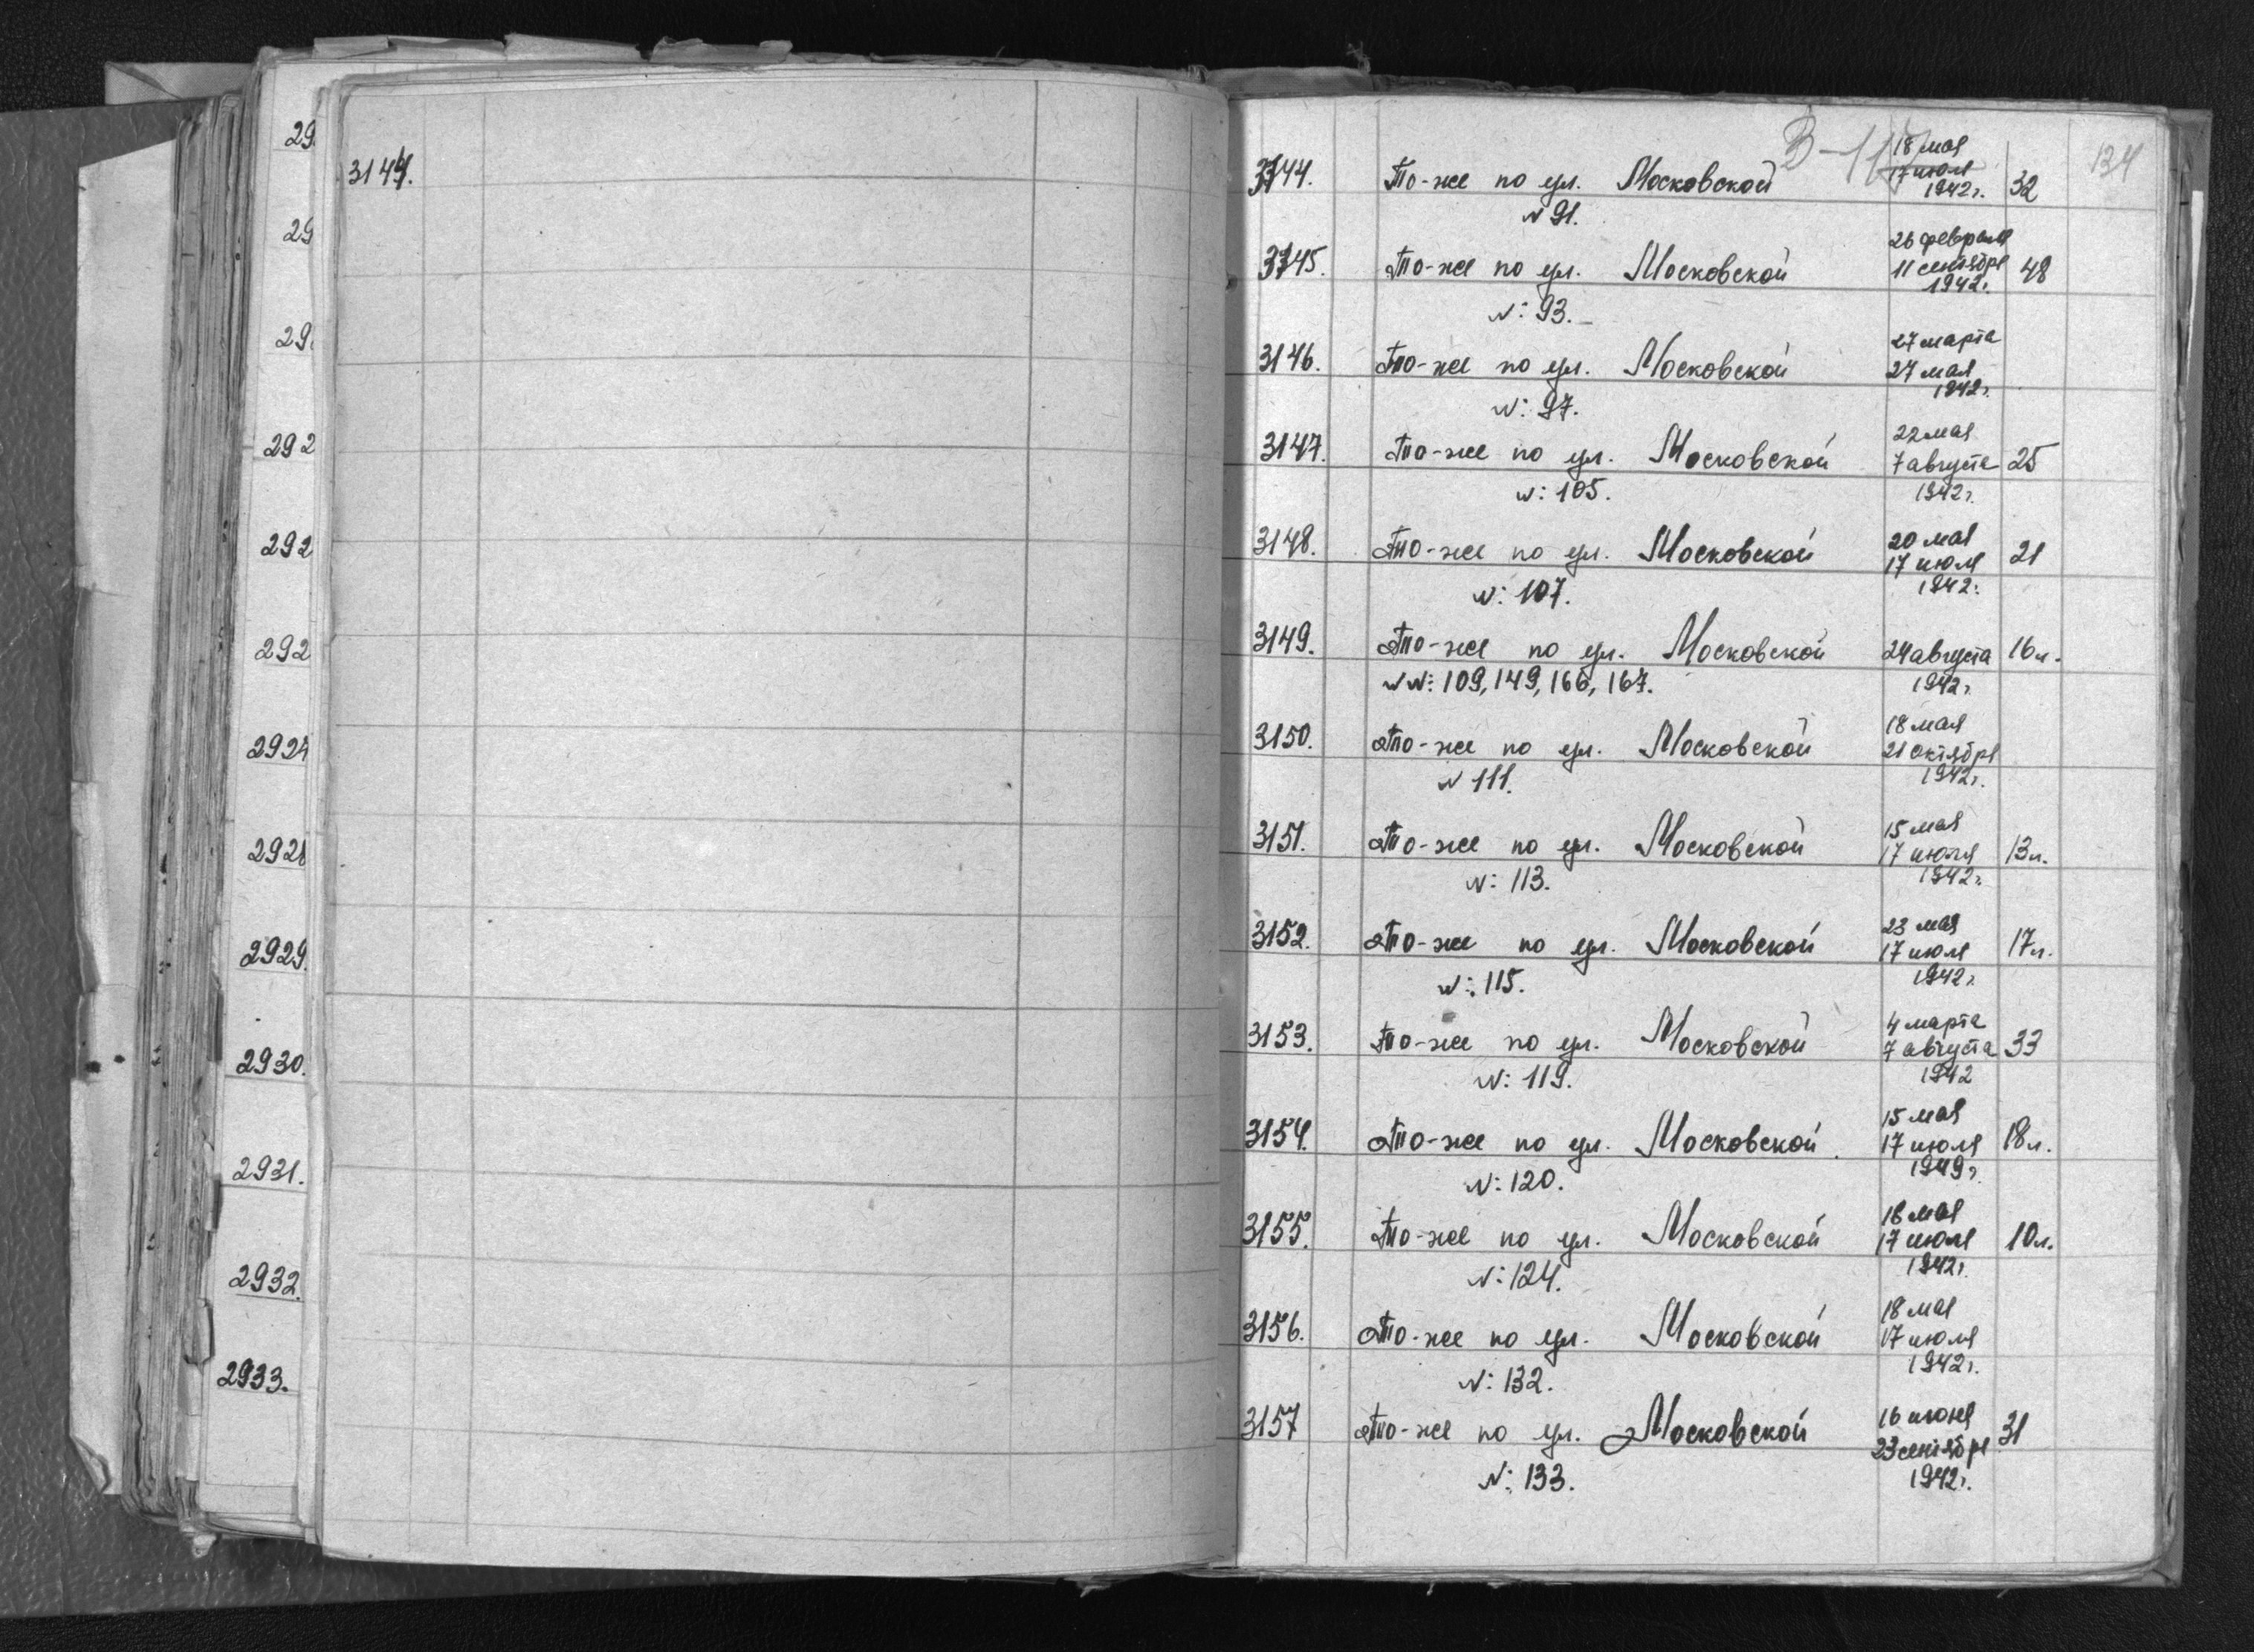 29
29
29
292
292
292
2924
2928
2929.
2930.
2931.
2932.
2933.
3144.
134
В-117
3144. То-же по ул. Московской 18 мая 17 июля 1942г. 32
N 91.
3145. То-же по ул. Московской 26 февраля 11 сентября 1942г. 48
N: 93.
3146. То-же по ул. Московской 27 марта 27 мая 1942г.
N: 97.
3147. То-же по ул. Московской 22 мая 7 августа 1942г. 25
N: 105.
3148. То-же по ул. Московской 20 мая 17 июля 1942г. 21
N: 107.
3149. То-же по ул. Московской 24 августа 1942г. 16л.
NN: 109, 149, 166, 167.
3150. То-же по ул. Московской 18 мая 21 октября 1942г.
N 111.
3151. То-же по ул. Московской 15 мая 17 июля 1942г. 13л.
N: 113.
3152. То-же по ул. Московской 23 мая 17 июля 1942г. 17л.
N: 115.
3153. То-же по ул. Московской 4 марта 7 августа 1942 33
N: 119.
3154. То-же по ул. Московской. 15 мая 17 июля 1949г. 18л.
N: 120.
3155. То-же по ул. Московской 18 мая 17 июля 1942г. 10л.
N: 124.
3156. То-же по ул. Московской 18 мая 17 июля 1942г.
N: 132.
3157 То-же по ул. Московской 16 июня 23 сентября 1942г. 31
N: 133.